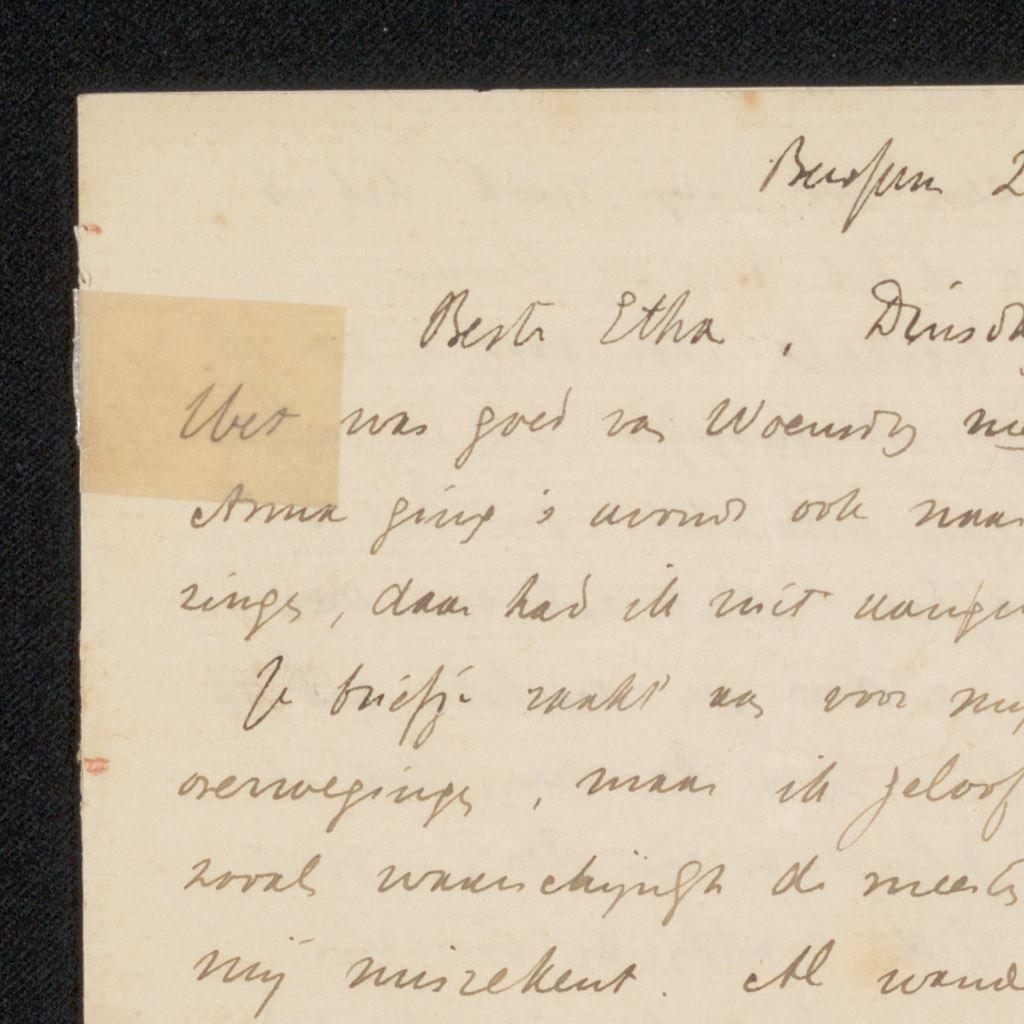 Bussum 2
Beste Etha, Dinsda
Het was goed van Woensdag
Anna ging 's avonds ook naar
zingen, daar had ik niet
Je briefje raakt aan voor
overwegingen, maar ik geloof
zooals waarschijnlijk de meeste
mij miskent. Al wand